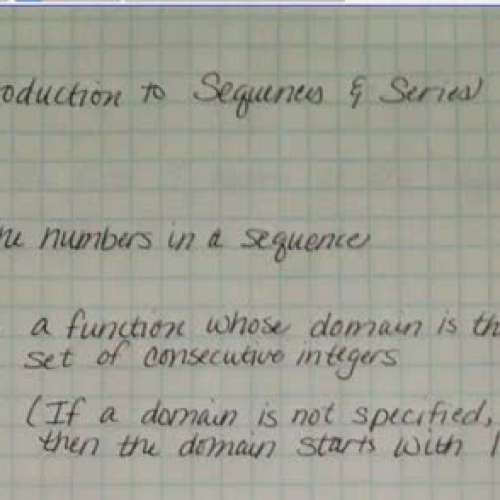 oduction to Sequences & Series
he numbers in a sequence
a function whose domain is th
set of consecutive integers
(If a domain is not specified,
then the domain starts with 1